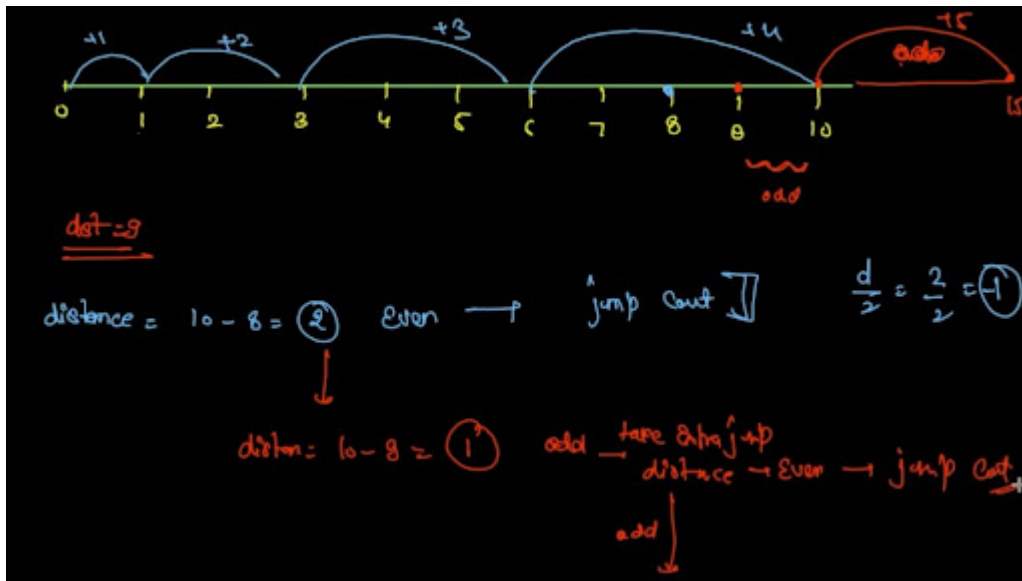 +1 +2 +3 +4 +5
odd
0 1 2 3 4 5 6 7 8 9 10 15
odd
dist = 9
distance = 10 - 8 = 2 Even → jump Count d/2 = 2/2 = 1
10 - 9 = 1 odd → take extra jump
distance → Even → jump
odd